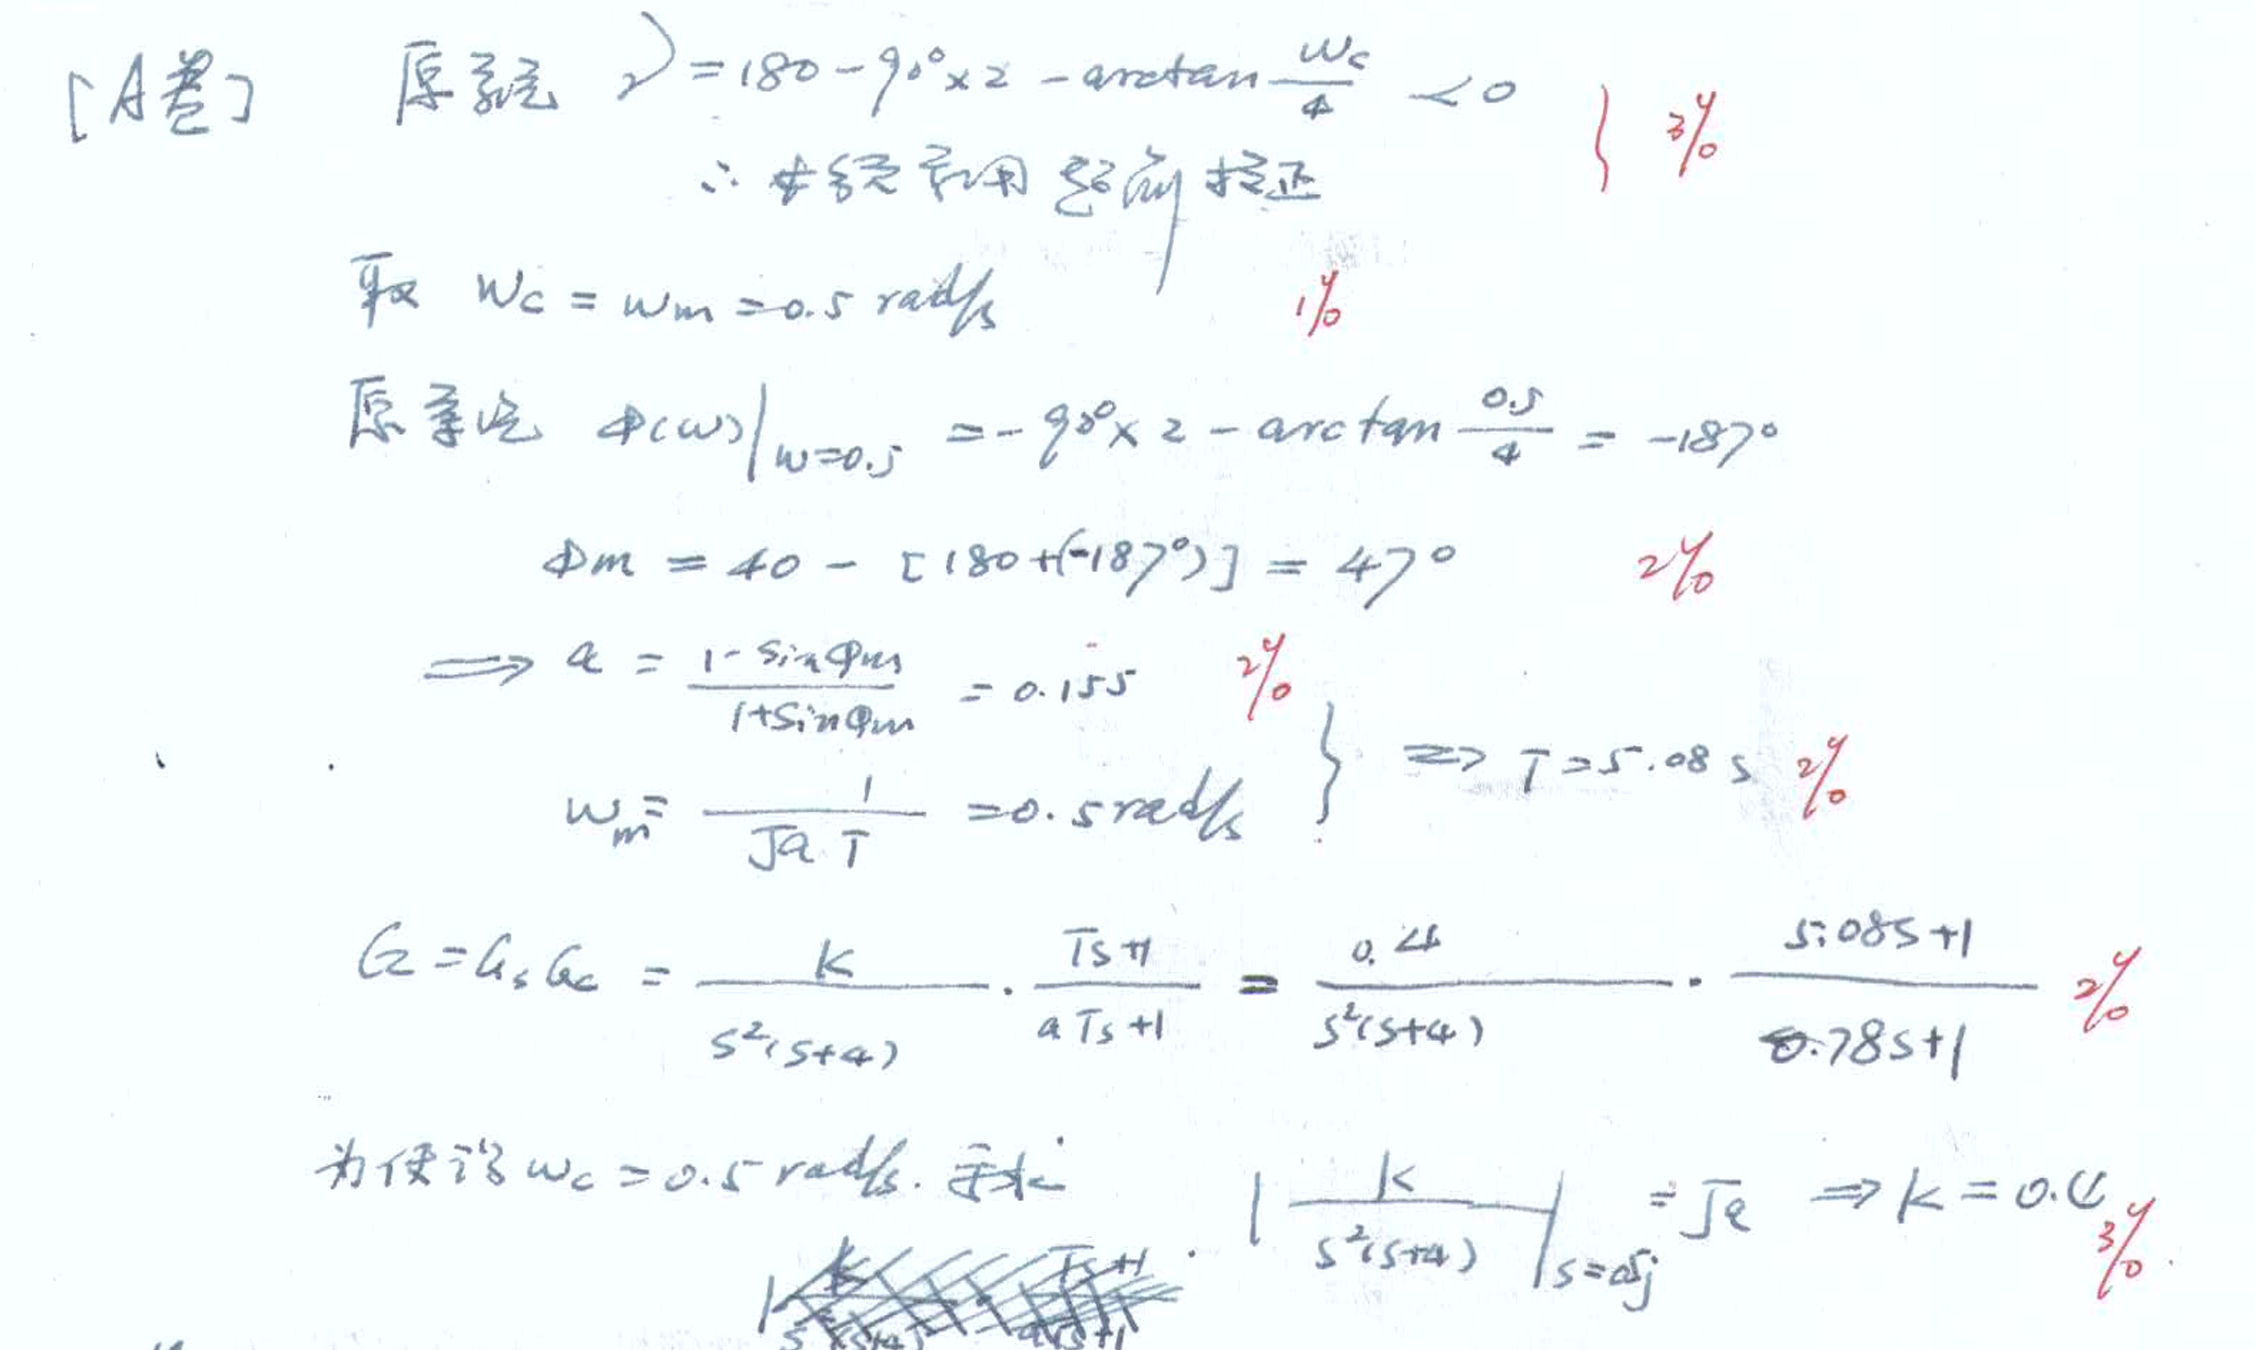 [A卷] 原系统 γ = 180 - 90° × 2 - arctan ωc/4 < 0 } 3分
∴ 必须采用超前校正
取 ωc = ωm = 0.5 rad/s 1分
原系统 φ(ω)|ω=0.5 = - 90° × 2 - arctan 0.5/4 = -187°
φm = 40 - [180+(-187°)] = 47° 2分
⟹ a = (1 - sinφm)/(1 + sinφm) = 0.155 2分
ωm = 1/(√a T) = 0.5 rad/s } ⟹ T = 5.08 s 2分
G = GsGc = K/(s²(s+4)) · (Ts+1)/(aTs+1) = 0.4/(s²(s+4)) · (5.08s+1)/(0.78s+1) 2分
为使得 ωc = 0.5 rad/s. 要求 |K/(s²(s+4))|s=0.5j = √a ⟹ K = 0.4 3分